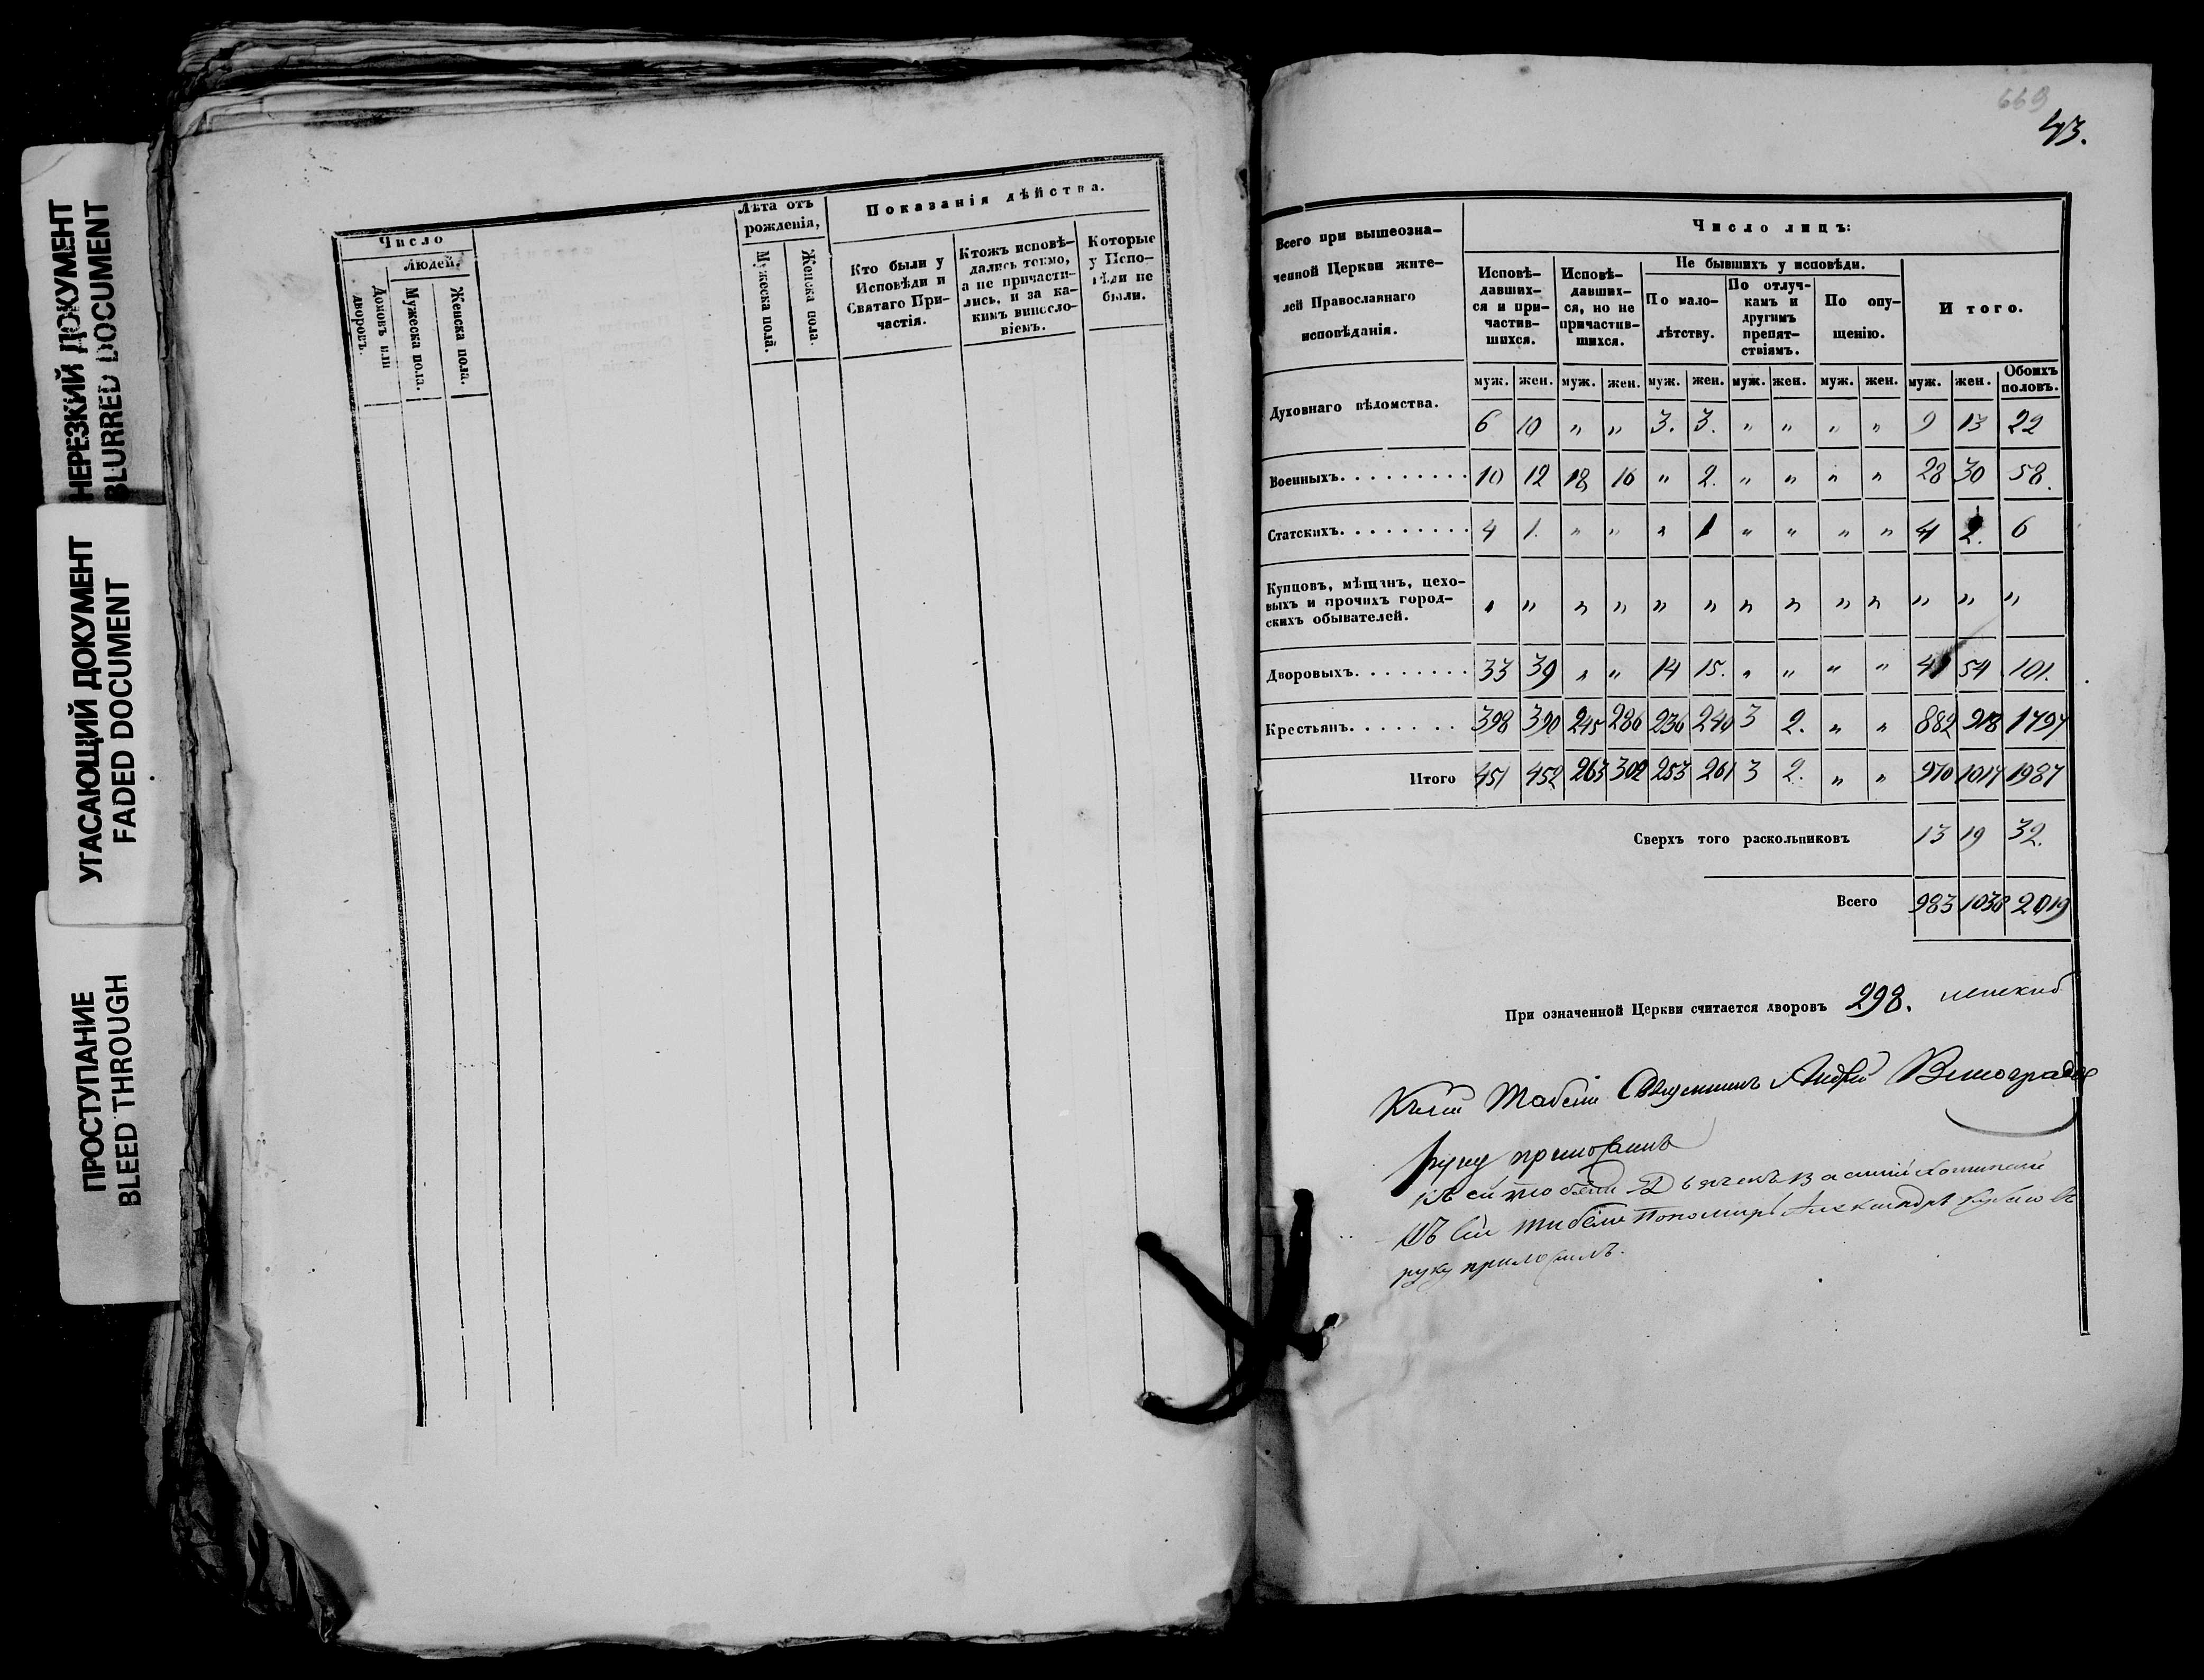 НЕРЕЗКИЙ ДОКУМЕНТ
BLURRED DOCUMENT
УГАСАЮЩИЙ ДОКУМЕНТ
FADED DOCUMENT
ПРОСТУПАНИЕ
BLEED THROUGH
Число
Людей.
Домовъ или дворовъ.
Мужеска пола.
Женска пола.
Лѣта отъ рожденія,
Мужеска пола.
Женска пола.
Показанія дѣйства.
Кто были у Исповѣди и Святаго При-частія.
Ктожъ исповѣ-дались токмо, а не причасти-лись, и за ка-кимъ винсло-віемъ.
Которые у Испо-вѣди не были.
669
43.
Всего при вышеозна-
ченной Церкви жите-
лей Православнаго
исповѣданія.
Число лицъ:
Исповѣ-давших-ся и при-частив-шихся.
Исповѣ-давших-ся, но не причастив-шихся.
Не бывшихъ у исповѣди.
По мало-лѣтству.
По отлуч-камъ и другимъ препят-ствіямъ.
По опу-щенію.
Итого.
муж. жен. муж. жен. муж. жен. муж. жен. муж. жен. муж. жен. Обоихъ половъ.
Духовнаго вѣдомства. 6 10 " " 3. 3. " " " " 9 13 22
Военныхъ. . . . . . . . . . 10 12 18 16 " 2. " " " " 28 30 58.
Статскихъ. . . . . . . . . . 4 1. " " " 1 " " " " 4 2. 6
Купцовъ, мѣщанъ, цехо-
выхъ и прочихъ город-
скихъ обывателей. " " " " " " " " " " " " "
Дворовыхъ. . . . . . . . . 33 39 " " 14 15. " " " " 54 101.
Крестьянъ. . . . . . . 398 390 245 286 236 240 3 2. " " 882 918 1797
Итого 451 452 263 302 253 261 3 2. " " 970 1017 1987
Сверхъ того раскольниковъ 13 19 32.
Всего 983 1036 2019
При означенной Церкви считается дворовъ 298.
Къ сей Табели Священникъ Андрей Виноградов
руку приложилъ
къ сей табели Дьячекъ Василий
Къ сей табели Пономарь Александръ
руку приложилъ.